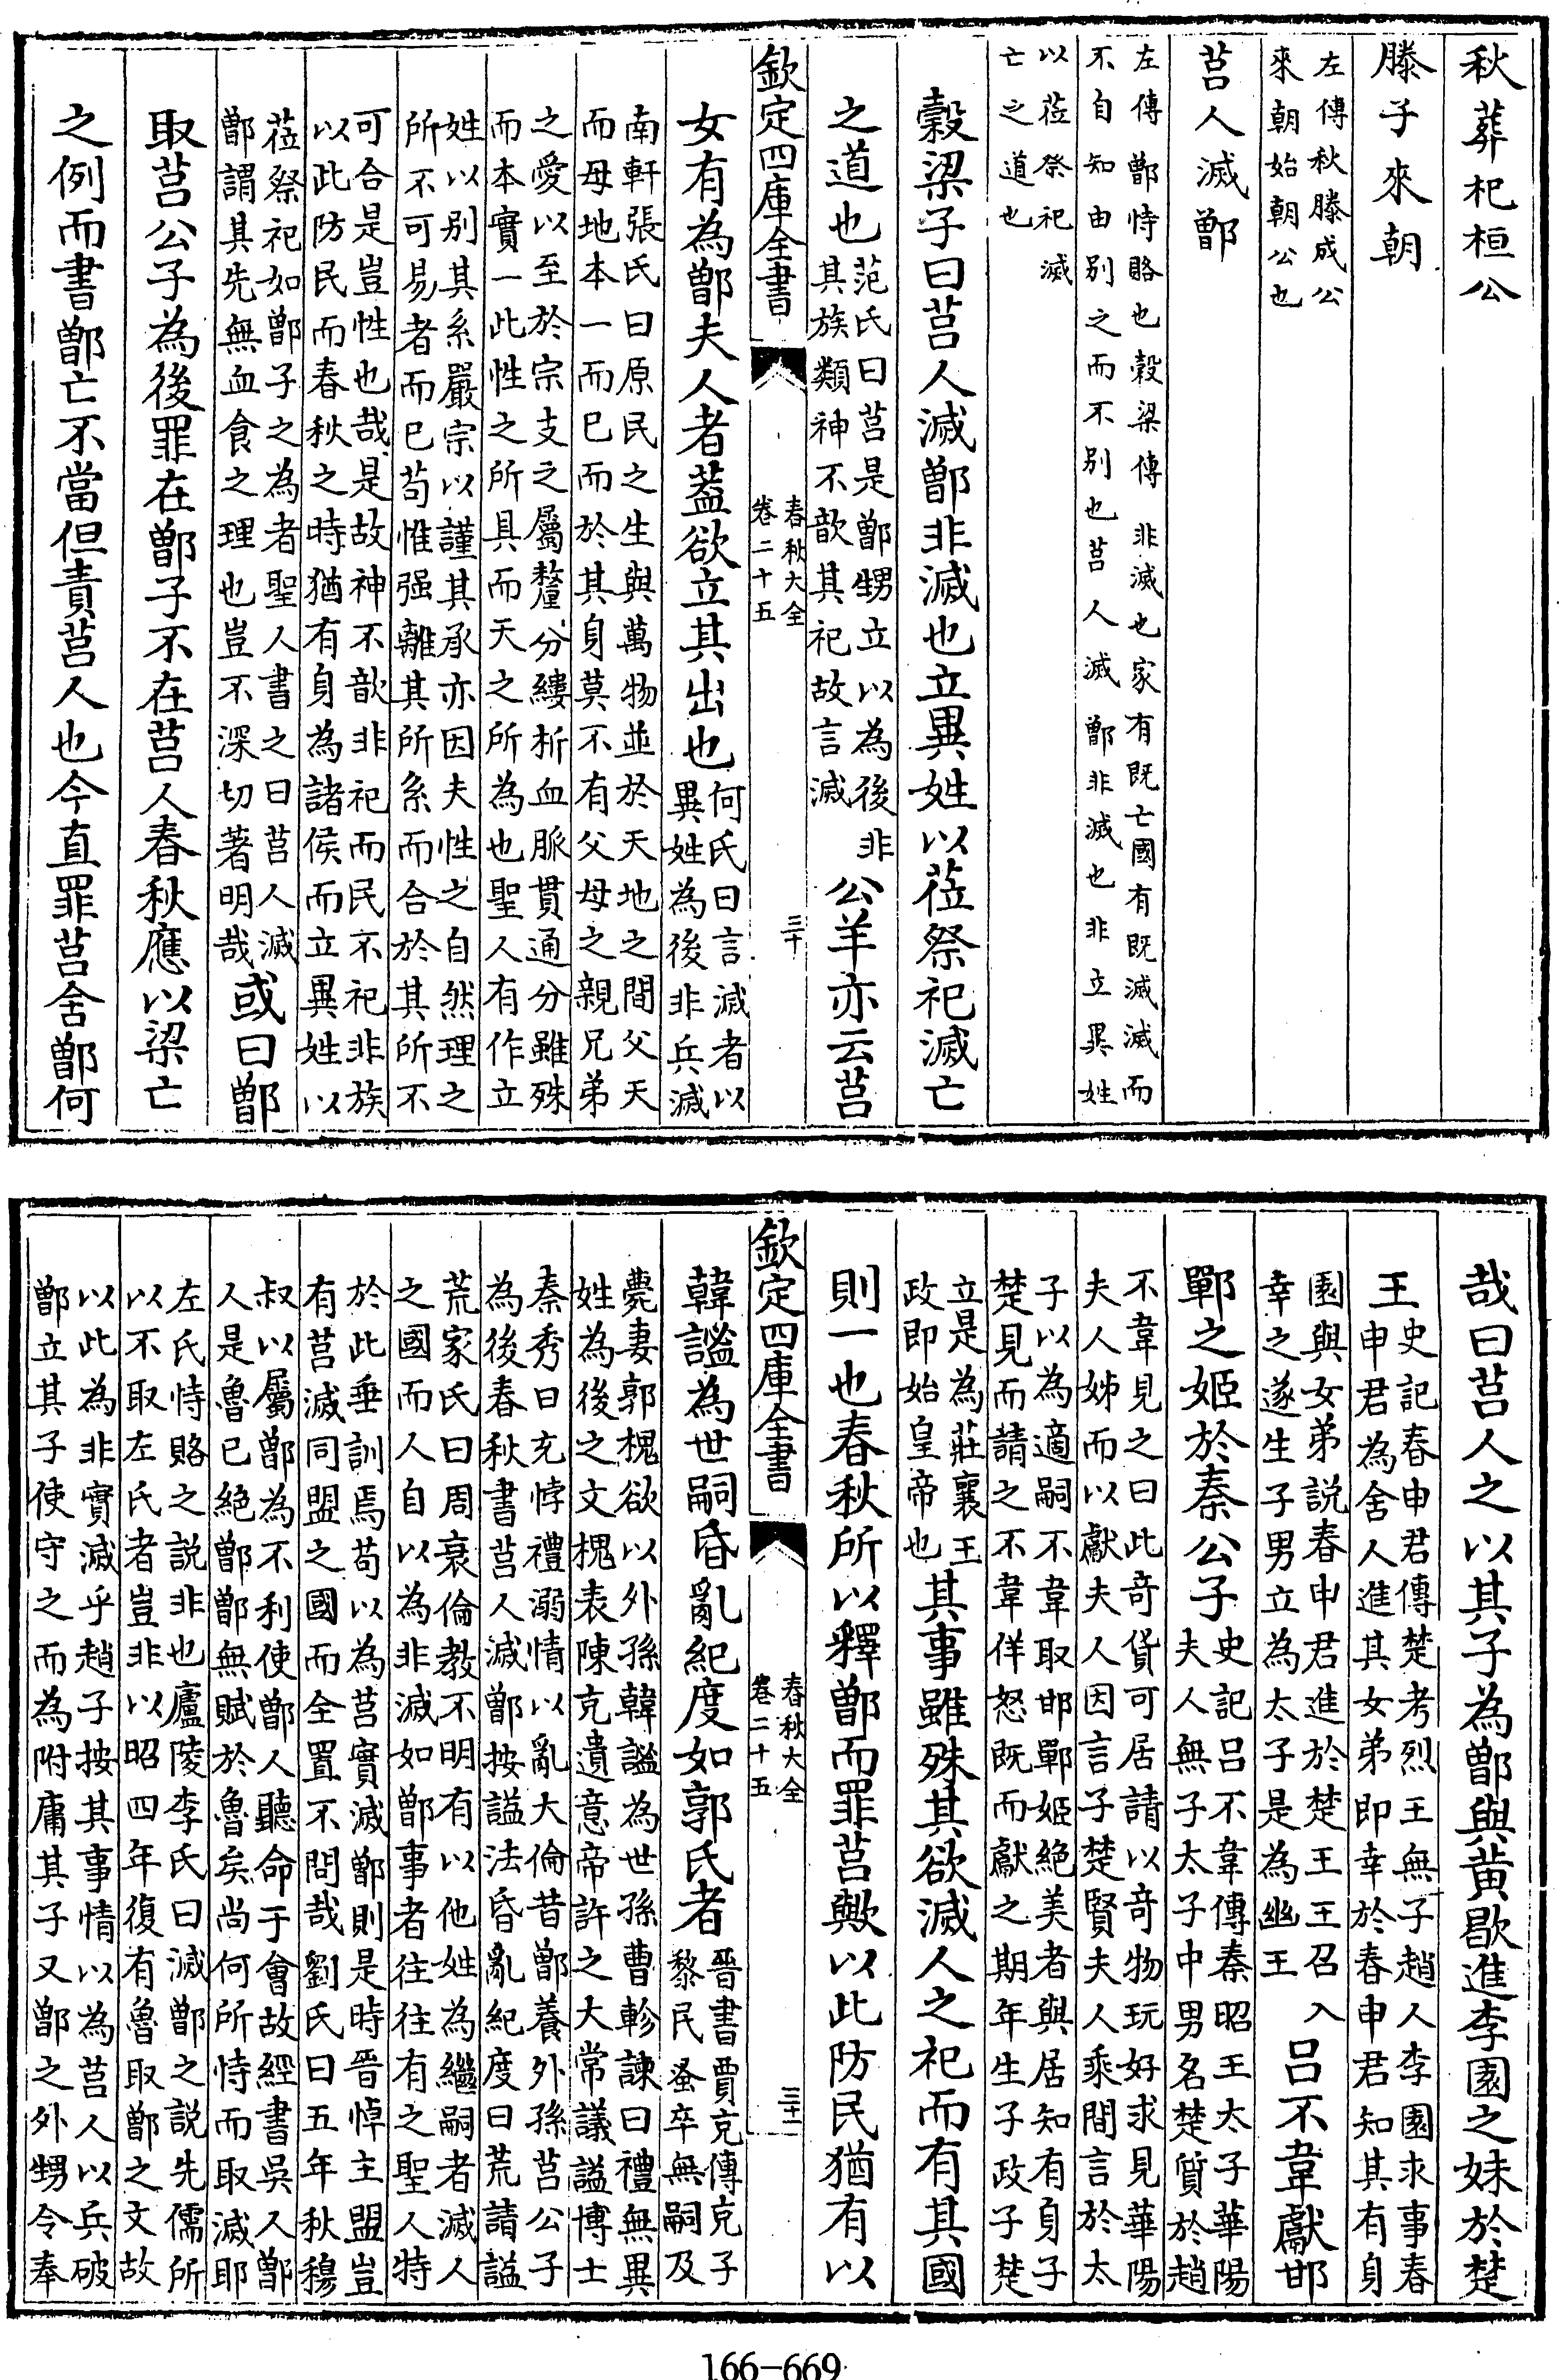 秋葬杞桓公
滕子來朝
左傳秋滕成公
來朝始朝公也
莒人滅鄫
左傳鄫恃賂也穀梁傳非滅也家有既亡國有既滅滅而
不自知由别之而不别也莒人滅鄫非滅也非立異姓
以莅祭祀滅
亡之道也
穀梁子曰莒人滅鄫非滅也立異姓以莅祭祀滅亡
之道也
范氏曰莒是鄫甥立以為後非
其族類神不歆其祀故言滅
公羊亦云莒
欽定四庫全書
春秋大全
卷二十五
三十
女有為鄫夫人者葢欲立其出也
何氏曰言滅者以
異姓為後非兵滅
南軒張氏曰原民之生與萬物並於天地之間父天
而母地本一而已而於其身莫不有父母之親兄弟
之愛以至於宗支之屬釐分縷析血脈貫通分雖殊
而本實一此性之所具而天之所為也聖人有作立
姓以别其系嚴宗以謹其承亦因夫性之自然理之
所不可易者而已茍惟强離其所系而合於其所不
可合是豈性也哉是故神不歆非祀而民不祀非族
以此防民而春秋之時猶有身為諸侯而立異姓以
莅祭祀如鄫子之為者聖人書之曰莒人滅
鄫謂其先無血食之理也豈不深切著明哉
或曰鄫
取莒公子為後罪在鄫子不在莒人春秋應以梁亡
之例而書鄫亡不當但責莒人也今直罪莒舍鄫何
哉曰莒人之以其子為鄫與黄歇進李園之妹於楚
王
史記春申君傳楚考烈王無子趙人李園求事春
申君為舍人進其女弟即幸於春申君知其有身
園與女弟説春申君進於楚王王召入
幸之遂生子男立為太子是為幽王
吕不韋獻邯
鄲之姬於秦公子
史記吕不韋傳秦昭王太子華陽
夫人無子太子中男名楚質於趙
不韋見之曰此奇貨可居請以奇物玩好求見華陽
夫人姊而以獻夫人因言子楚賢夫人乘間言於太
子以為適嗣不韋取邯鄲姬絶美者與居知有身子
楚見而請之不韋佯怒既而獻之期年生子政子楚
立是為莊襄王
政即始皇帝也
其事雖殊其欲滅人之祀而有其國
則一也春秋所以釋鄫而罪莒歟以此防民猶有以
欽定四庫全書
春秋大全
卷二十五
三十一
韓謐為世嗣昏亂紀度如郭氏者
晉書賈充傳充子
黎民蚤卒無嗣及
薨妻郭槐欲以外孫韓謐為世孫曹軫諫曰禮無異
姓為後之文槐表陳充遺意帝許之大常議謚博士
秦秀曰充悖禮溺情以亂大倫昔鄫養外孫莒公子
為後春秋書莒人滅鄫按謚法昏亂紀度曰荒請謚
荒家氏曰周衰倫教不明有以他姓為繼嗣者滅人
之國而人自以為非滅如鄫事者往往有之聖人特
於此垂訓焉茍以為莒實滅鄫則是時晉悼主盟豈
有莒滅同盟之國而全置不問哉劉氏曰五年秋穆
叔以屬鄫為不利使鄫人聽命于會故經書吳人鄫
人是魯已絶鄫鄫無賦於魯矣尚何所恃而取滅耶
左氏恃賂之説非也廬陵李氏曰滅鄫之説先儒所
以不取左氏者豈非以昭四年復有魯取鄫之文故
以此為非實滅乎趙子按其事情以為莒人以兵破
鄫立其子使守之而為附庸其子又鄫之外甥令奉
166-669